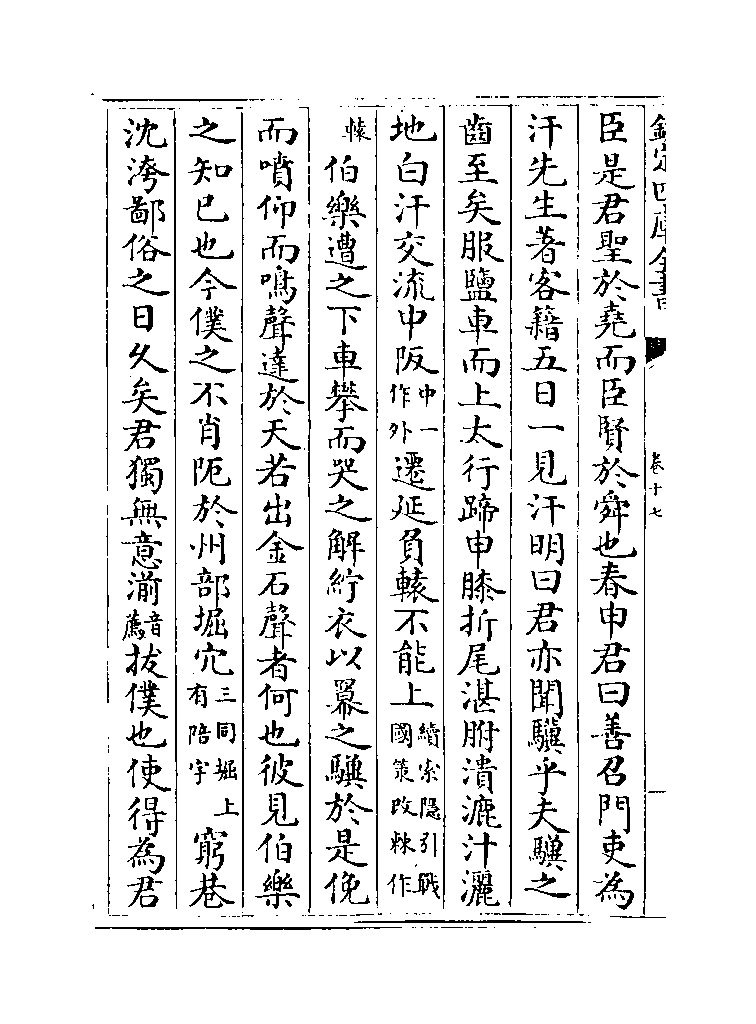 欽定四庫全書
卷十七
臣是君聖於堯而臣賢於舜也春申君曰善召門吏為
汗先生著客籍五日一見汗明曰君亦聞驥乎夫驥之
齒至矣服鹽車而上太行蹄申膝折尾湛胕潰漉汁灑
地白汗交流中阪中一作外遷延負轅不能上續索隠引戰國策改棘作
轅伯樂遭之下車攀而哭之解紵衣以羃之驥於是俛
而噴仰而鳴聲達於天若出金石聲者何也彼見伯樂
之知已也今僕之不肖阨於州部堀穴三同堀上有陪字窮巷
沈洿鄙俗之日久矣君獨無意湔音薦拔僕也使得為君